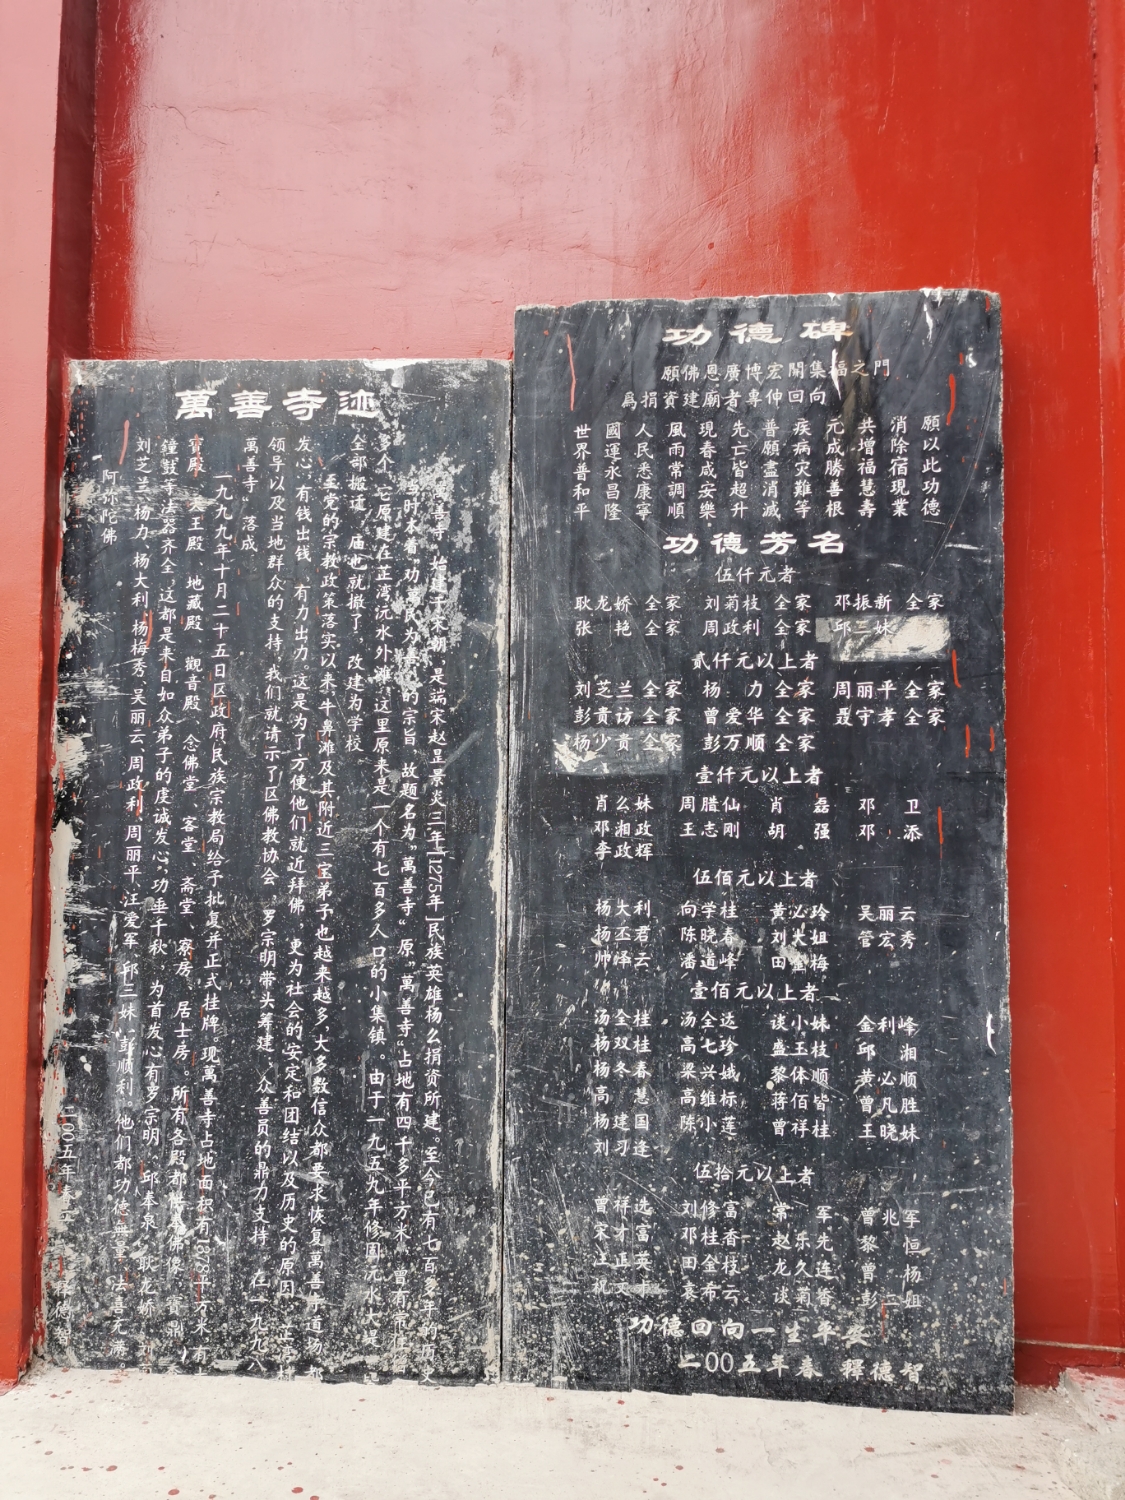 萬善寺迹
萬善寺，始建于宋朝，是端宋赵昰景炎三年[1275年]民族英雄杨么捐资所建。至今已有七百多年的历史
当时本着"功 民为善 的宗旨，故题名为"萬善寺"原"萬善寺"占地有四千多平方米，曾有常住
多个，它原建在芷湾沅水外滩，这里原来是一个有七百多人口的小集镇。由于一九五九年修固沅水大堤，
全部搬迁，庙也就撤了，改建为学校
党的宗教政策落实以来，牛鼻滩及其附近三宝弟子也越来越多，大多数信众都要求恢复萬善寺道场，都
发心，有钱出钱，有力出力，这是为了方便他们就近拜佛，更为社会的安定和团结以及历史的原因，
领导以及当地群众的支持，我们就请示了区佛教协会，罗宗明带头筹建，众善员的鼎力支持，在一九九八
萬善寺"落成
一九九九年十月二十五日区政府民族宗教局给予批复并正式挂牌。现萬善寺占地面积有1878平方米，有
寶殿、天王殿、地藏殿、觀音殿、念佛堂、客堂、斋堂、寮房、居士房。所有各殿都 佛像，寶鼎，
鐘鼓等法器齐全，这都是来自如众弟子的虔诚发心，功垂千秋，为首发心有罗宗明、邱奉泉、耿龙娇、刘
刘芝兰、杨力、杨大利、杨梅秀、吴丽云、周政利、周丽平、汪爱军、邱三妹、彭顺利。他们都功德無量，法喜充满。
阿弥陀佛
二00五年 释德智
功德碑
願佛恩廣博宏開集福之門
爲捐資建廟者專伸回向
願以此功德
消除宿現業
共增福慧壽
元成勝善根
疾病灾難等
普願盡消滅
先亡皆超升
現春咸安樂
風雨常調順
人民悉康寧
國運永昌隆
世界普和平
功德芳名
伍仟元者
耿龙娇全家 刘菊枝全家 邓振新全家
张艳全家 周政利全家 邱三妹
贰仟元以上者
刘芝兰全家 杨力全家 周丽平全家
彭贵访全家 曾爱华全家 聂守孝全家
杨少贵全家 彭万顺全家
壹仟元以上者
肖么妹 周腊仙 肖磊 邓卫
邓湘政 王志刚 胡强 邓添
李政辉
伍佰元以上者
杨大利 向学桂 黄必玲 吴丽云
杨丕君 陈晓春 刘大姐 管宏秀
帅泽云 潘道峰 田 梅
壹佰元以上者
汤全桂 汤全达 谈小妹 金利峰
杨双桂 高七珍 盛玉枝 邱湘
杨冬春 梁兴娥 黎体顺 黄必顺
高慧 高维标 蒋佰皆 曾凡胜
杨建国 陈小莲 曾祥桂 王晓妹
刘习逢
伍拾元以上者
曾祥选 刘修富 常军 曾兆军
宋才富 邓桂香 赵乐先 黎恒
汪正英 田金枝 龙久连 曾杨
祝天 袁布云 谈菊香 彭二姐
功德回向一生平安
二00五年春 釋德智